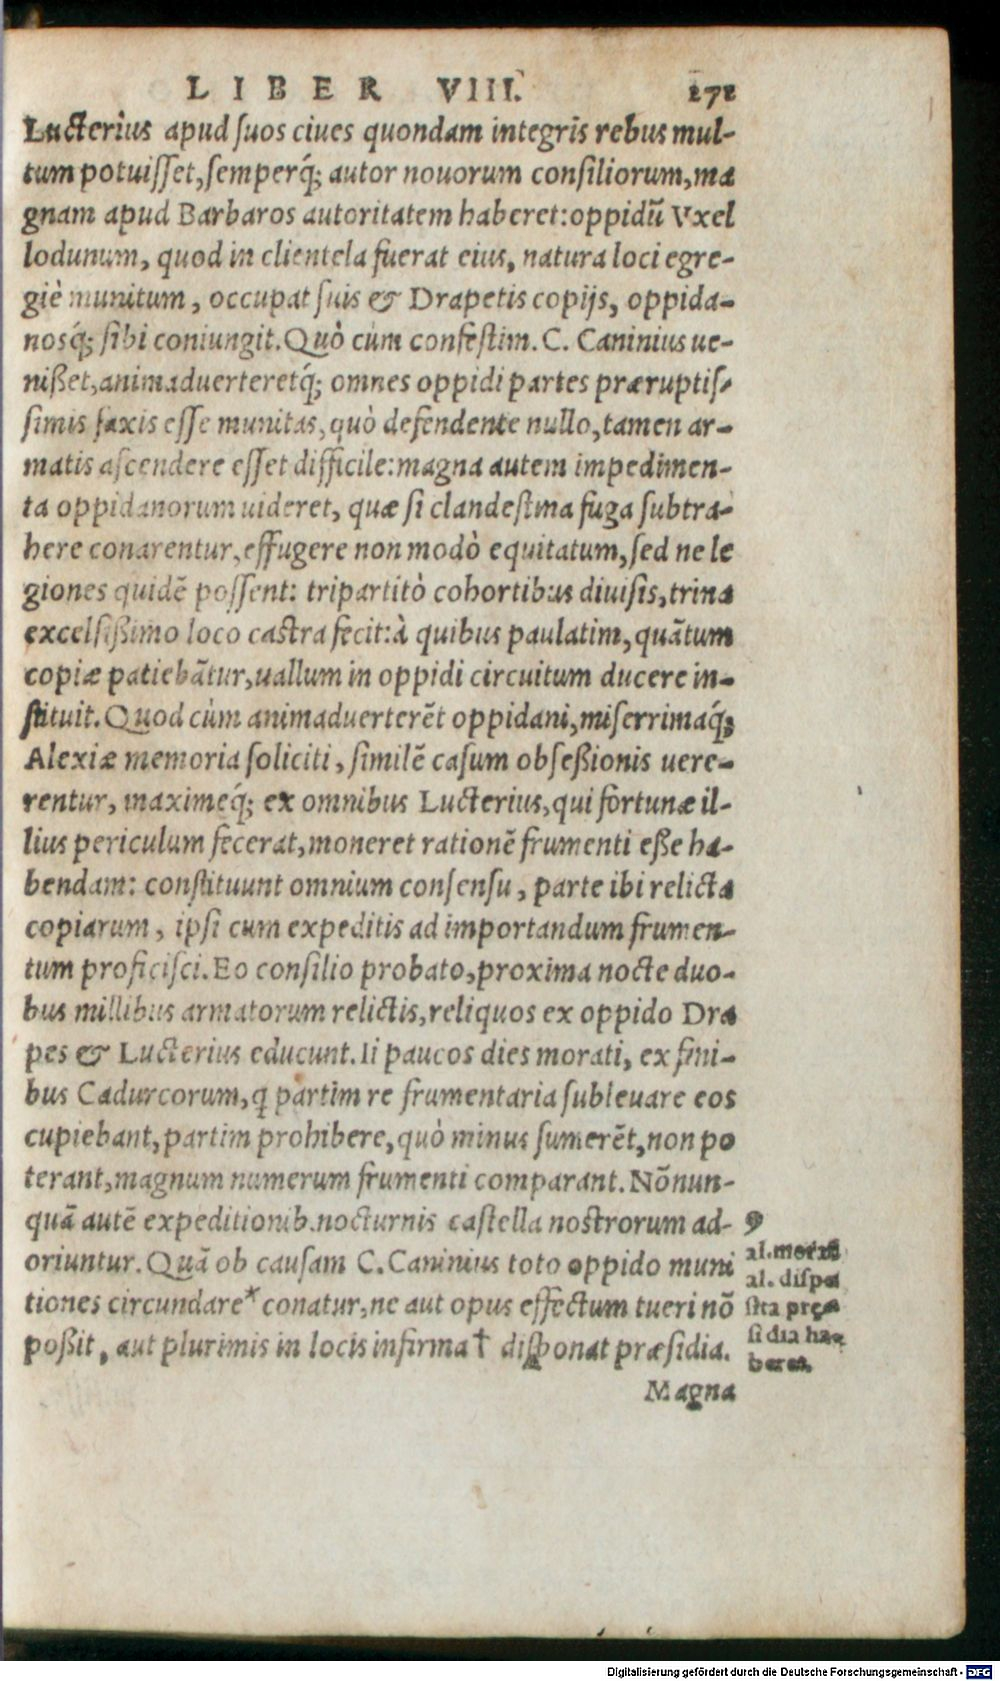 LIBER VIII. 271
Lucterius apud suos ciues quondam integris rebus mul-
tum potuisset, semperq́; autor nouorum consiliorum, ma
gnam apud Barbaros autoritatem haberet: oppidũ Vxel
lodunum, quod in clientela fuerat eius, natura loci egre-
giè munitum, occupat suis & Drapetis copijs, oppida-
nosq́; sibi coniungit. Quò cùm confestim. C. Caninius ue-
nißet, animaduerteretq́; omnes oppidi partes præruptis-
simis saxis esse munitas, quò defendente nullo, tamen ar-
matis ascendere esset difficile: magna autem impedimen-
ta oppidanorum uideret, quæ si clandestina fuga subtra-
here conarentur, effugere non modò equitatum, sed ne le
giones quidẽ possent: tripartitò cohortibus diuisis, trina
excelsißimo loco castra fecit: à quibus paulatim, quãtum
copiæ patiebãtur, uallum in oppidi circuitum ducere in-
stituit. Quod cùm animaduerterẽt oppidani, miserrimaq́;
Alexiæ memoria soliciti, similẽ casum obseßionis uere-
rentur, maximeq́; ex omnibus Lucterius, qui fortunæ il-
lius periculum fecerat, moneret rationẽ frumenti eße ha-
bendam: constituunt omnium consensu, parte ibi relicta
copiarum, ipsi cum expeditis ad importandum frumen-
tum proficisci. Eo consilio probato, proxima nocte duo-
bus millibus armatorum relictis, reliquos ex oppido Dra
pes & Lucterius educunt. Ii paucos dies morati, ex fini-
bus Cadurcorum, q partim re frumentaria subleuare eos
cupiebant, partim prohibere, quò minus sumerẽt, non po
terant, magnum numerum frumenti comparant. Nõnun-
quã autẽ expeditionib. nocturnis castella nostrorum ad-
oriuntur. Quã ob causam C. Caninius toto oppido muni
tiones circundare* conatur, ne aut opus effectum tueri nõ
poßit, aut plurimis in locis infirma† disponat præsidia.
Magna
al. morat
al. dispo
sita præ
sidia ha-
beret.
Digitalisierung gefördert durch die Deutsche Forschungsgemeinschaft - DFG